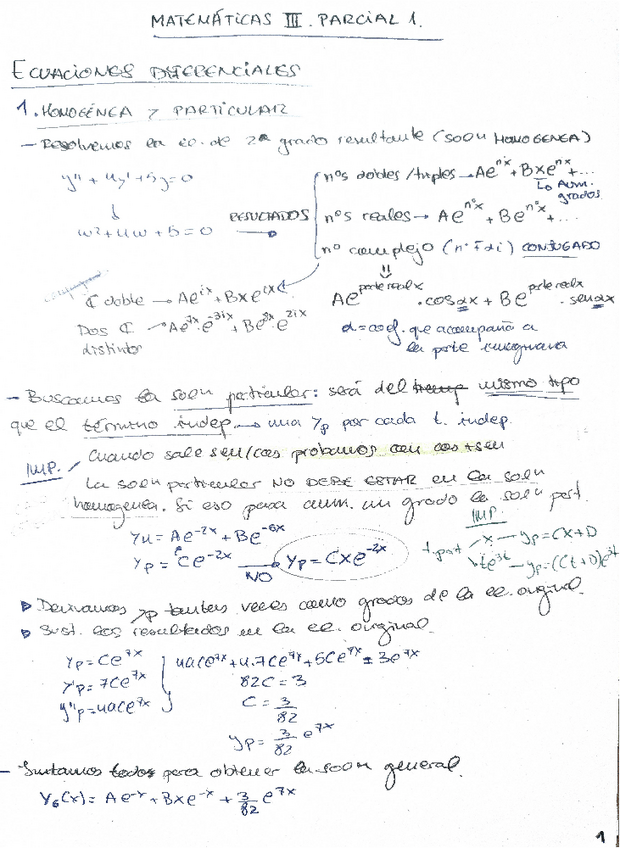 MATEMÁTICAS III. PARCIAL 1.
ECUACIONES DIFERENCIALES
1. HOMOGÉNEA Y PARTICULAR
- Resolvemos la ec. de 2º grado resultante (soln HOMOGÉNEA)
y'' + 4y' + 5y = 0
w² + 4w + 5 = 0
RESULTADOS
nºs dobles/triples → Ae^{nx} + Bxe^{nx} + ...
↳ Aum. grados
nºs reales → Ae^{nºx} + Be^{nºx} + ...
nº complejo (nº ∓ αi) CONJUGADO
Ae^{parte real x} · cos αx + Be^{parte real x} · sen αx
α = coef. que acompaña a
la parte imaginaria
ℂ doble → Ae^{ix} + Bxe^{ix}
Dos ℂ distintos
- Buscamos la soln particular: será del mismo tipo
que el término indep. → una yp por cada t. indep.
IMP. / Cuando sale sen/cos probamos con cos + sen
La soln particular NO DEBE ESTAR en la soln
homogénea. Si eso pasa aum. un grado la soln part.
yH = Ae^{-2x} + Be^{-6x}
yp = Ce^{-2x} → NO yp = Cxe^{-2x}
IMP.
t. part x → yp = Cx + D
te^{3t} → yp = (Ct + D)e^{3t}
▶ Derivamos yp tantas veces como grados de la ec. original.
▶ Sust. los resultados en la ec. original.
yp = Ce^{7x}
y'p = 7Ce^{7x}
y''p = 49Ce^{7x}
49Ce^{7x} + 4·7Ce^{7x} + 5Ce^{7x} = 3e^{7x}
82C = 3
C = 3/82
yp = 3/82 e^{7x}
- Juntamos todo para obtener la soln general.
yG(x) = Ae^{-x} + Bxe^{-x} + 3/82 e^{7x}
1